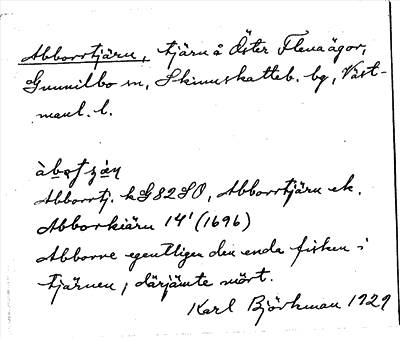 Abborrtjärn, tjärn å Öster Flenaägor,
Gunnilbo sn, Skinnskatteb. bg, Väst-
manl. l.
Abborrtj. kG 82SO, Abborrtjärn ek.
Abborkiärn 14' (1696)
Abborre egentligen den enda fisken i
tjärnen, därjämte mört.
Karl Björkman 1929